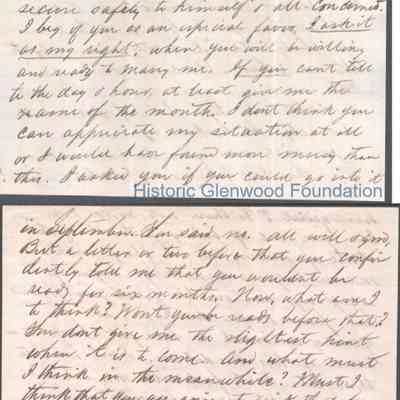 secure safety to himself & all concerned.
I beg of you as an especial favor, I ask it
as my right, when you will be willing
and ready to marry me. If you cant tell
to the day & hour, at least give me the
name of the month. I dont think you
can appreciate my situation at all
or I would have found more mercy than
this. I asked you if you could go into it
Historic Glenwood Foundation
in September. You said no. all well & good,
But a letter or two before that you confi
dently told me that you wouldnt be
ready for six months. Now, what am I
to think? Wont you be ready before that?
You dont give me the slightest hint
when it is to come. And what must
I think in the meanwhile? Must I
think that you are going to